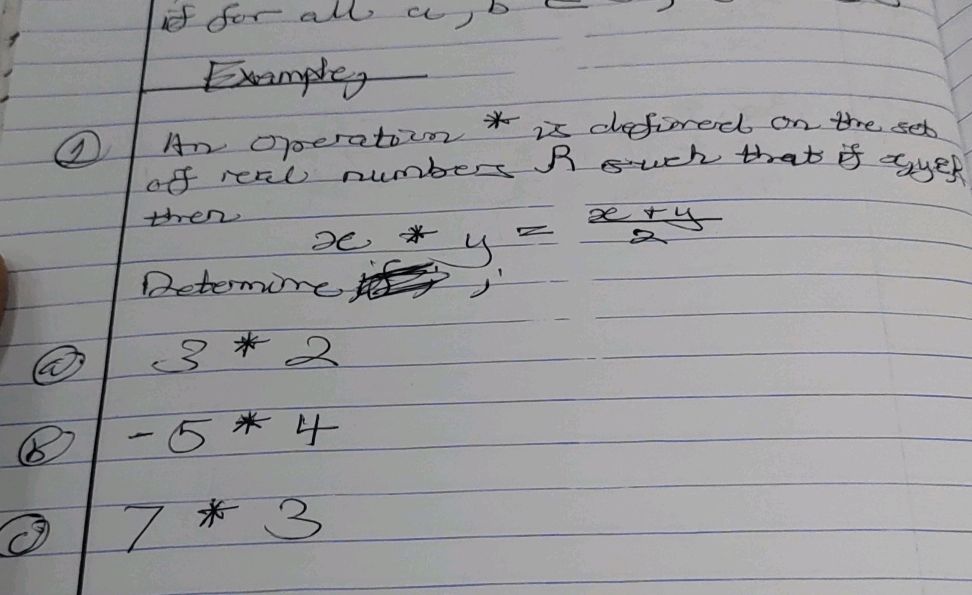 if for all a, b
Example,
① An operation * is defined on the set
off real numbers R such that if x,y∈R,
then
x * y = x + y / 2
Determine ;
ⓐ 3 * 2
ⓑ - 5 * 4
ⓒ 7 * 3